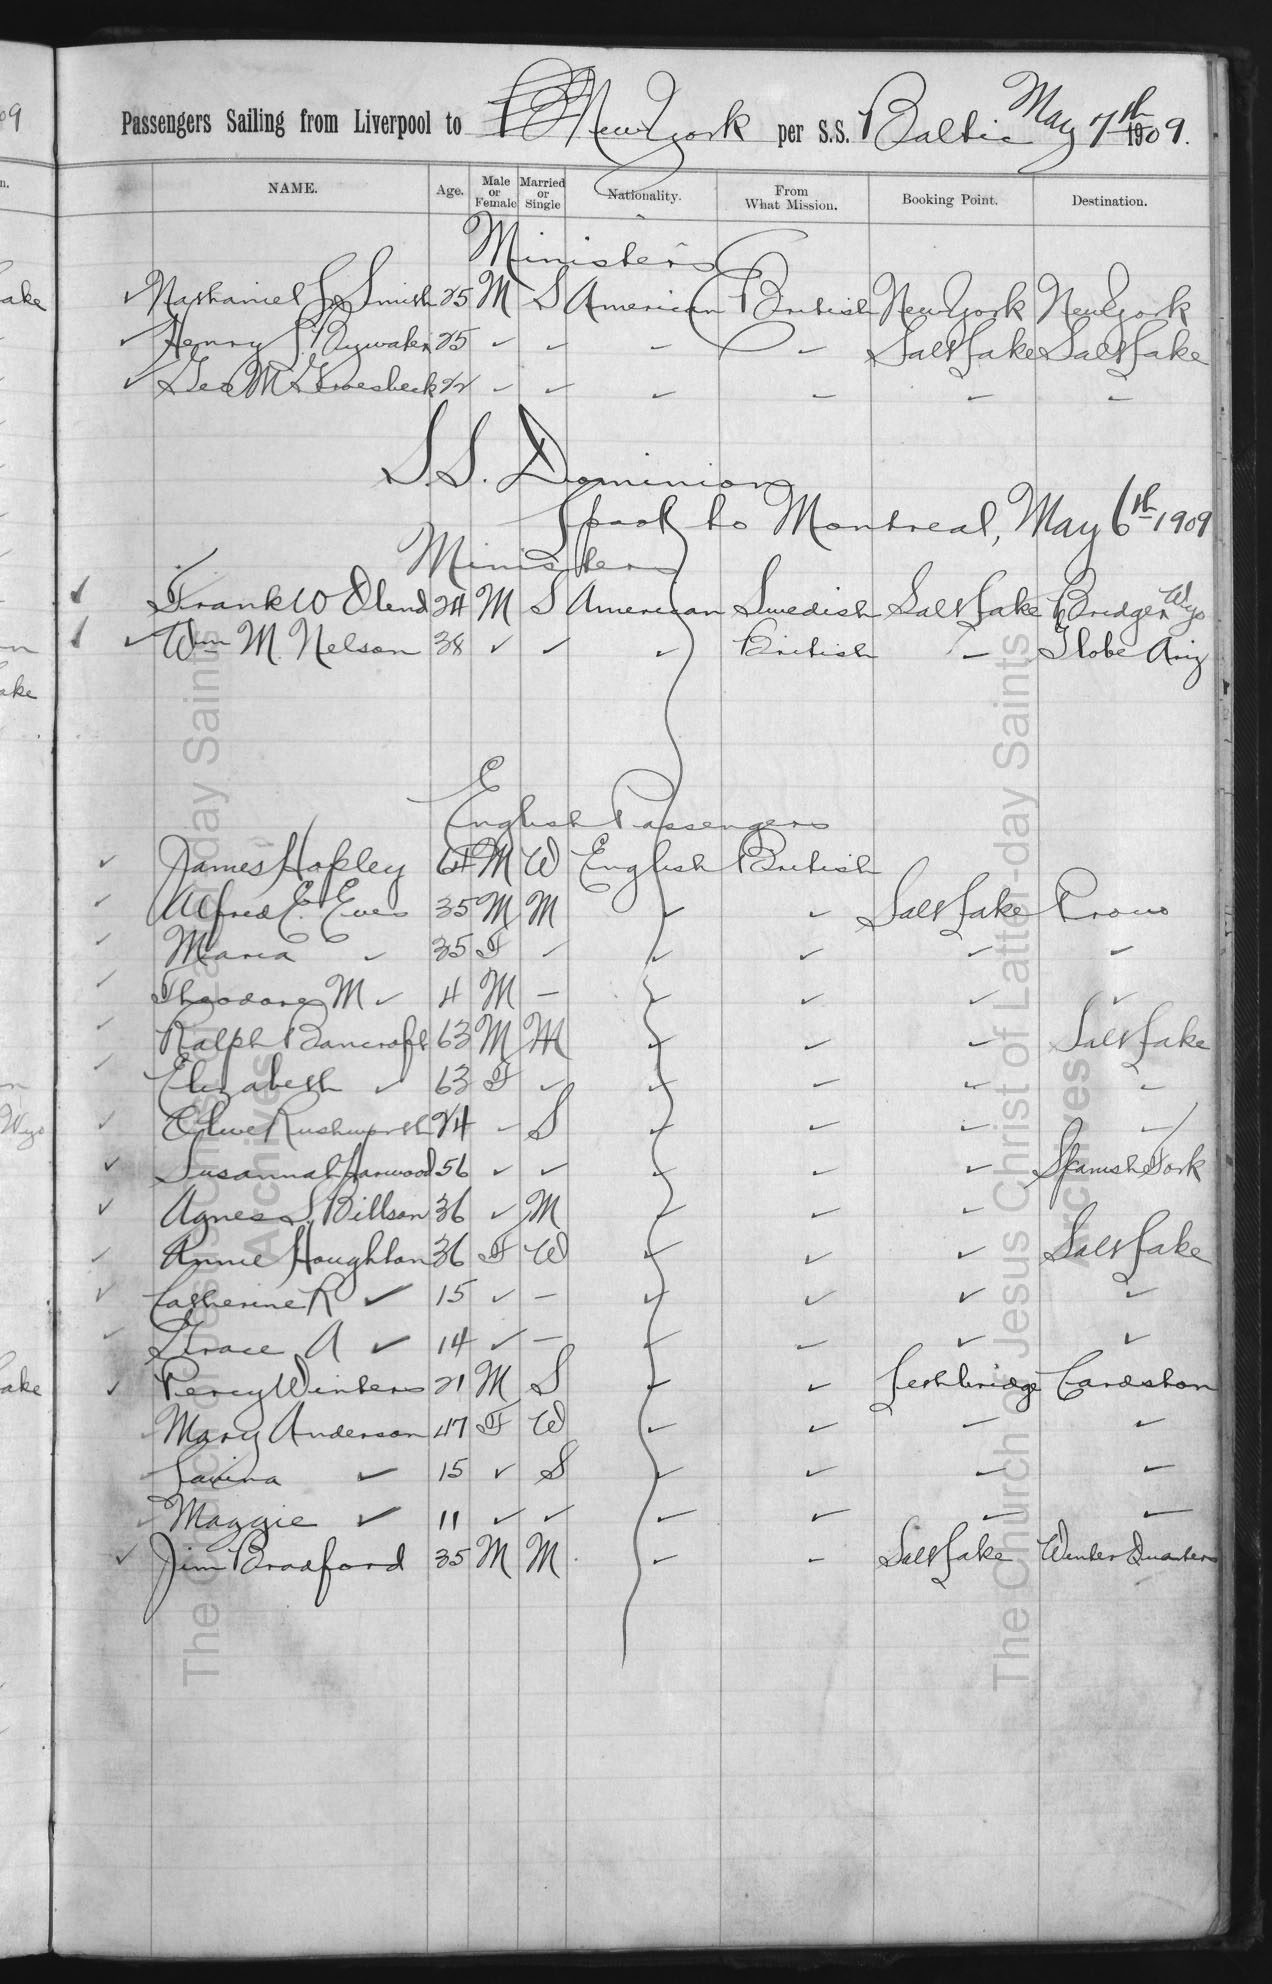 Passengers Sailing from Liverpool to New York per S.S. Baltic May 7th 1909.
NAME. Age. Male or Female Married or Single Nationality. From What Mission. Booking Point. Destination.
Ministers
✓ Nathaniel G. Smith 25 M S American British New York New York
✓ Henry J. Bywater 25 ✓ ✓ ✓ ✓ Salt Lake Salt Lake
✓ Geo M Groesbeck 22 ✓ ✓ ✓ ✓ ✓ ✓
S.S. Dominion
Lpool to Montreal, May 6th 1909
Ministers
✓ Frank W Olend 24 M S American Swedish Salt Lake Bridger Wyo
✓ ✓ Wm M. Nelson 38 ✓ ✓ ✓ British ✓ Globe Ariz
English Passengers
✓ James Hopley 64 M W English British
✓ Alfred E. Eves 35 M M ✓ ✓ Salt Lake Provo
✓ Maria ✓ 35 F ✓ ✓ ✓ ✓ ✓
✓ Theodore M ✓ 4 M — ✓ ✓ ✓ ✓
✓ Ralph Bancroft 63 M M ✓ ✓ ✓ Salt Lake
✓ Elizabeth ✓ 63 F ✓ ✓ ✓ ✓ ✓
✓ Rushworth 24 ✓ S ✓ ✓ ✓ ✓
✓ Susannah Harwood 56 ✓ ✓ ✓ ✓ ✓ Spanish Fork
✓ Agnes S. Billson 36 ✓ M ✓ ✓ ✓
✓ Annie Houghton 36 F W ✓ ✓ ✓ Salt Lake
✓ Catherine R ✓ 15 ✓ — ✓ ✓ ✓ ✓
✓ Grace A ✓ 14 ✓ — ✓ ✓ ✓ ✓
✓ Percy Winters 21 M S ✓ ✓ Lethbridge Cardston
✓ Mary Anderson 47 F W ✓ ✓ ✓ ✓
✓ Lavina ✓ 15 ✓ S ✓ ✓ ✓ ✓
✓ Maggie ✓ 11 ✓ ✓ ✓ ✓ ✓ ✓
✓ Jim Bradford 35 M M ✓ ✓ Salt Lake Winter Quarters
The Church of Jesus Christ of Latter-day Saints
Archives
The Church of Jesus Christ of Latter-day Saints
Archives